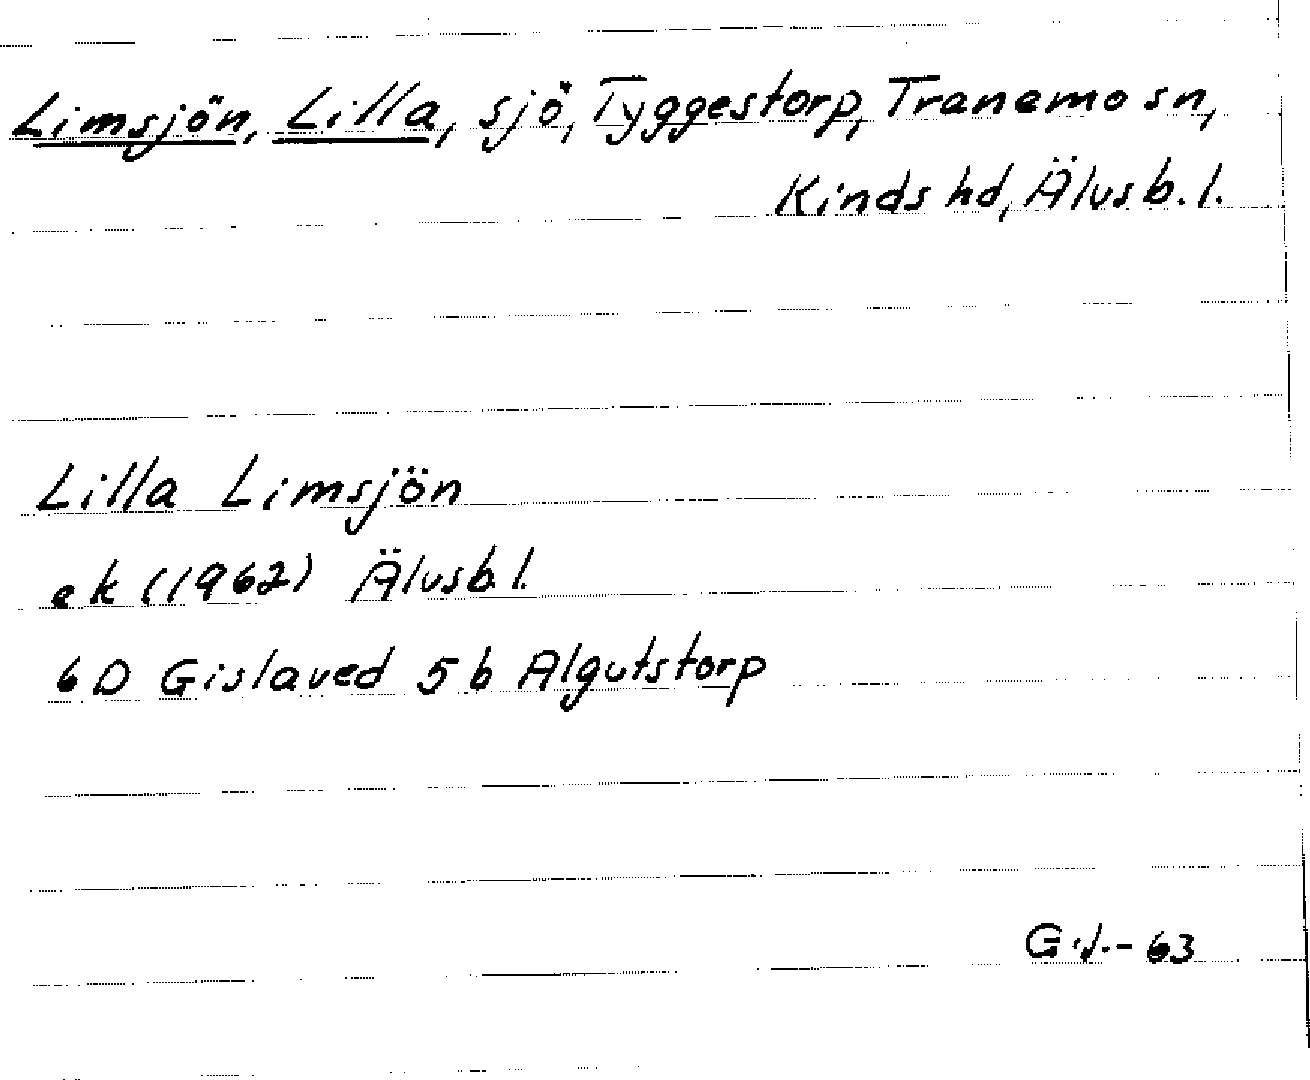 Limsjön, Lilla, sjö, Tyggestorp, Tranemo sn,
Kinds hd, Älvsb. l.
Lilla Limsjön
ek (1962) Älvsb. l.
6 D Gislaved 5 b Algutstorp
-63